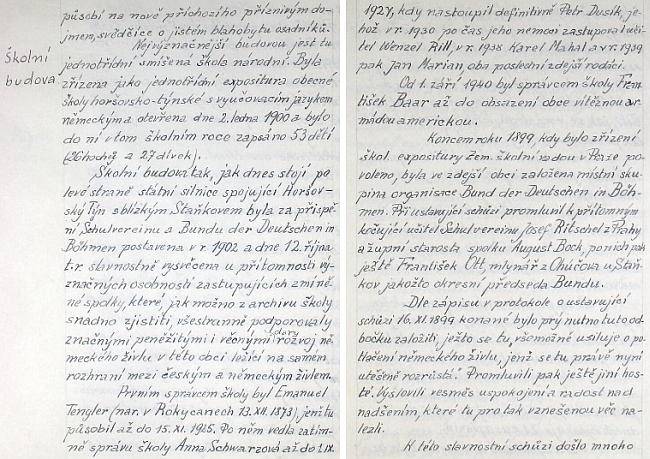 Školní
budova
působí na nově příchozího příznivým do-
jmem, svědčíce o jistém blahobytu osadníků.
Nejvýznačnější budovou jest tu
jednotřídní smíšená škola národní. Byla
zřízena jako jednotřídní expositura obecné
školy horšovsko-týnské s vyučovacím jazykem
německým a otevřena dne 2. ledna 1900 a bylo
do ní v tom školním roce zapsáno 53 dětí
(26 hochů a 27 dívek).
Školní budova tak, jak dnes stojí po
levé straně státní silnice spojující Horšov-
ský Týn s blízkým Staňkovem byla za přispě-
ní Schulvereinu a Bundu der Deutschen in
Böhmen postavena v r. 1902 a dne 12. října
t. r. slavnostně vysvěcena u přítomnosti vý-
značných osobností zastupujících zmíně-
né spolky, které, jak možno z archivu školy
snadno zjistiti, všestranně podporovaly
značnými peněžitými i věcnými dary rozvoj ně-
meckého živlu v této obci ležící na samém
rozhraní mezi českým a německým živlem.
Prvním správcem školy byl Emanuel
Tengler (nar. v Rokycanech 13. XII. 1873), jenž tu
působil až do 15. XI. 1915. Po něm vedla zatím-
ně správu školy Anna Schwarzová až do 1. IX.
1927, kdy nastoupil definitivně Petr Dusík, je-
hož v r. 1930 po čas jeho nemoci zastupoval uči-
tel Wenzel Rill, v r. 1938 Karel Mahal a v r. 1939
pak Jan Marian, oba poslední zdejší rodáci.
Od 1. září 1940 byl správcem školy Fran-
tišek Baar až do obsazení obce vítěznou ar-
mádou americkou.
Koncem roku 1899, kdy bylo zřízení
škol. expositury Zem. školní radou v Praze po-
voleno, byla ve zdejší obci založena místní sku-
pina organisace Bund der Deutschen in Böh-
men. Při ustavující schůzi promluvil k přítomným
kočující učitel Schulvereinu Josef Ritschel z Prahy
a župní starosta spolku August Bock, po nich pak
ještě František Ott, mlynář z Ohúčova u Staň-
kov, jakožto okresní předseda Bundu.
Dle zápisu v protokole o ustavující
schůzi 16. XI. 1899 konané bylo prý nutno tuto od-
bočku založiti, ježto se tu „všemožně usiluje o po-
tlačení německého živlu, jenž se tu právě nyní
utěšeně rozrůstá.“ Promluvili pak ještě jiní hos-
té. Vyslovili vesměs uspokojení a radost nad
nadšením, které tu pro tak vznešenou věc na-
lezli.
K této slavnostní schůzi došlo mnoho